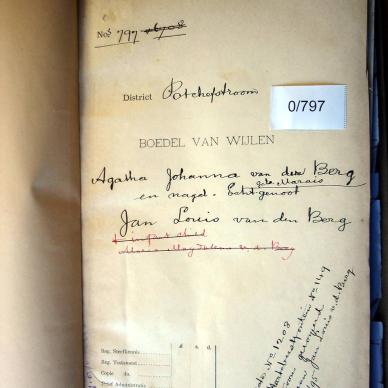 No. 797 ~~6708~~
District Potchefstroom
0/797
BOEDEL VAN WIJLEN
Agatha Johanna van den Berg
geb. Marais
en nagel. Echtgenoot
Jan Louis van den Berg
+ infant child
Maria Magdalena v. d. Berg
£ s. d.
Reg. Sterfkennis
Reg. Testament
Copie do.
Brief Administra
No 1208
No 1149
Jan Louis v. d. Berg